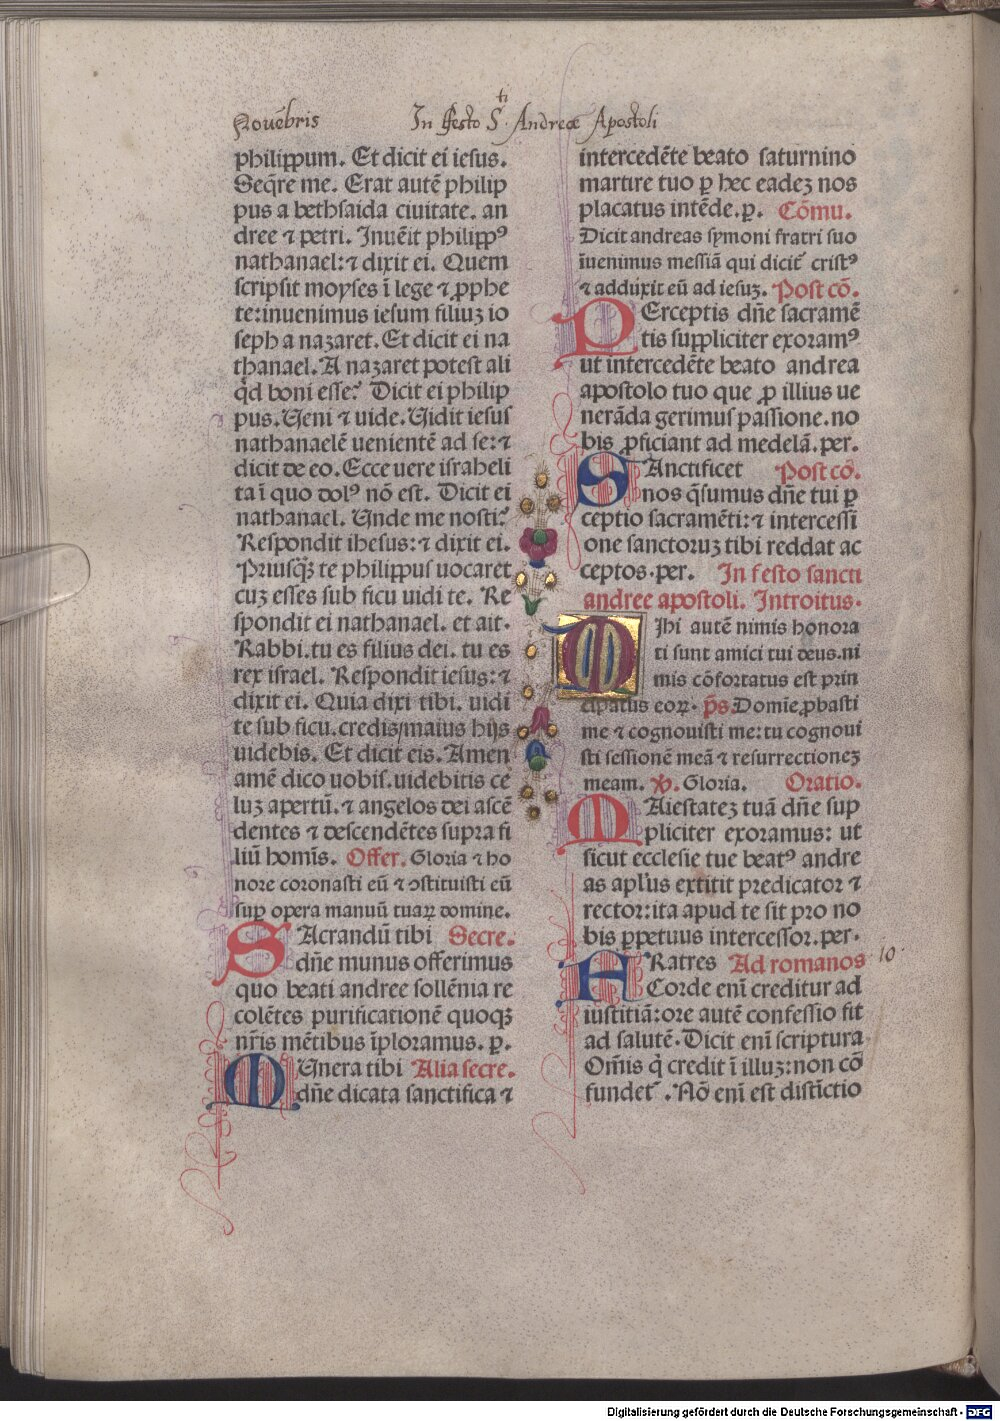 Nouēbris In Festo S.ti Andreæ Apostoli
philippum. Et dicit ei iesus.
Seq̄re me. Erat autē philip
pus a bethsaida ciuitate. an
dree ⁊ petri. Inuēit philippꝰ
nathanael: ⁊ dixit ei. Quem
scripsit moyses ī lege ⁊ ꝓphe
te: inuenimus iesum filiuȝ io
seph a nazaret. Et dicit ei na
thanael. A nazaret potest ali
qd̄ boni esse? Dicit ei philip
pus. Ueni ⁊ uide. Uidit iesus
nathanaelē uenientē ad se: ⁊
dicit de eo. Ecce uere israheli
ta ī quo dolꝰ nō est. Dicit ei
nathanael. Unde me nosti?
Respondit ihesus: ⁊ dixit ei.
Priusqȝ te philippus uocaret
cuȝ esses sub ficu uidi te. Re
spondit ei nathanael. et ait.
Rabbi. tu es filius dei. tu es
rex israel. Respondit iesus: ⁊
dixit ei. Quia dixi tibi. uidi
te sub ficu. credis maius hijs
uidebis. Et dicit eis. Amen
amē dico uobis. uidebitis ce
luȝ apertū. ⁊ angelos dei ascē
dentes ⁊ descendētes supra fi
liū homīs. Offer. Gloria ⁊ ho
nore coronasti eū ⁊ ↄstituisti eū
suꝑ opera manuū tuaꝝ domine.
SAcrandū tibi Secre.
dn̄e munus offerimus
quo beati andree sollēnia re
colētes purificationē quoqȝ
nr̄is mētibus īploramus. ꝑ.
MUnera tibi Alia secre.
dn̄e dicata sanctifica ⁊
intercedēte beato saturnino
martire tuo ꝑ hec eadeȝ nos
placatus intēde. ꝑ. Cōmu.
Dicit andreas symoni fratri suo
īuenimus messiā qui dicit᷑ cristꝰ
⁊ adduxit eū ad iesuȝ. Post cō.
PErceptis dn̄e sacramē
tis suppliciter exoramꝰ
ut intercedēte beato andrea
apostolo tuo que ꝓ illius ue
nerāda gerimus passione. no
bis ꝓficiant ad medelā. per.
SAnctificet Post cō.
nos q̄sumus dn̄e tui ꝑ
ceptio sacramēti: ⁊ intercessi
one sanctoruȝ tibi reddat ac
ceptos. per. In festo sancti
andree apostoli. Introitus.
MIhi autē nimis honora
ti sunt amici tui deus. ni
mis cōfortatus est prin
cipatus eoꝝ. p̄s. Domīe ꝓbasti
me ⁊ cognouisti me: tu cognoui
sti sessionē meā ⁊ resurrectioneȝ
meam. ꝟ. Gloria. Oratio.
MAiestateȝ tuā dn̄e sup
pliciter exoramus: ut
sicut ecclesie tue beatꝰ andre
as apl'us extitit predicator ⁊
rector: ita apud te sit pro no
bis ꝑpetuus intercessor. per.
FRatres Ad romanos 10.
Corde enī creditur ad
iustitiā: ore autē confessio fit
ad salutē. Dicit enī scriptura
Om̄is q̇ credit ī illuȝ: non cō
fundet᷑. Nō enī est distīctio
Digitalisierung gefördert durch die Deutsche Forschungsgemeinschaft - DFG